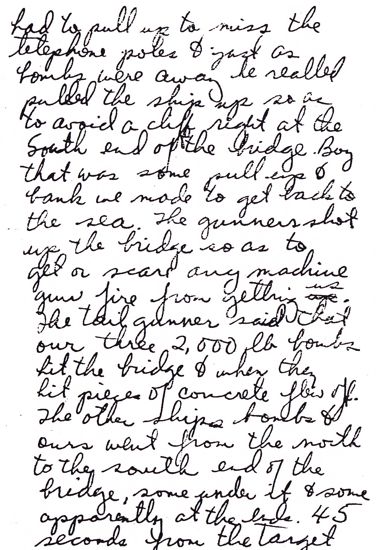 had to pull up to miss the
telephone poles & just as
bombs were away he really
pulled the ship up so as
to avoid a cliff right at the
South end of the bridge. Boy
that was some pull up &
bank we made to get back to
the sea. The gunners shot
up the bridge so as to
get or scare any machine
gun fire from getting us.
The tail gunner said that
our three 2,000 lb bombs
hit the bridge & when they
hit pieces of concrete flew off.
The other ships bombs &
ours went from the north
to the south end of the
bridge, some under it & some
apparently at the ends. 45
seconds from the target